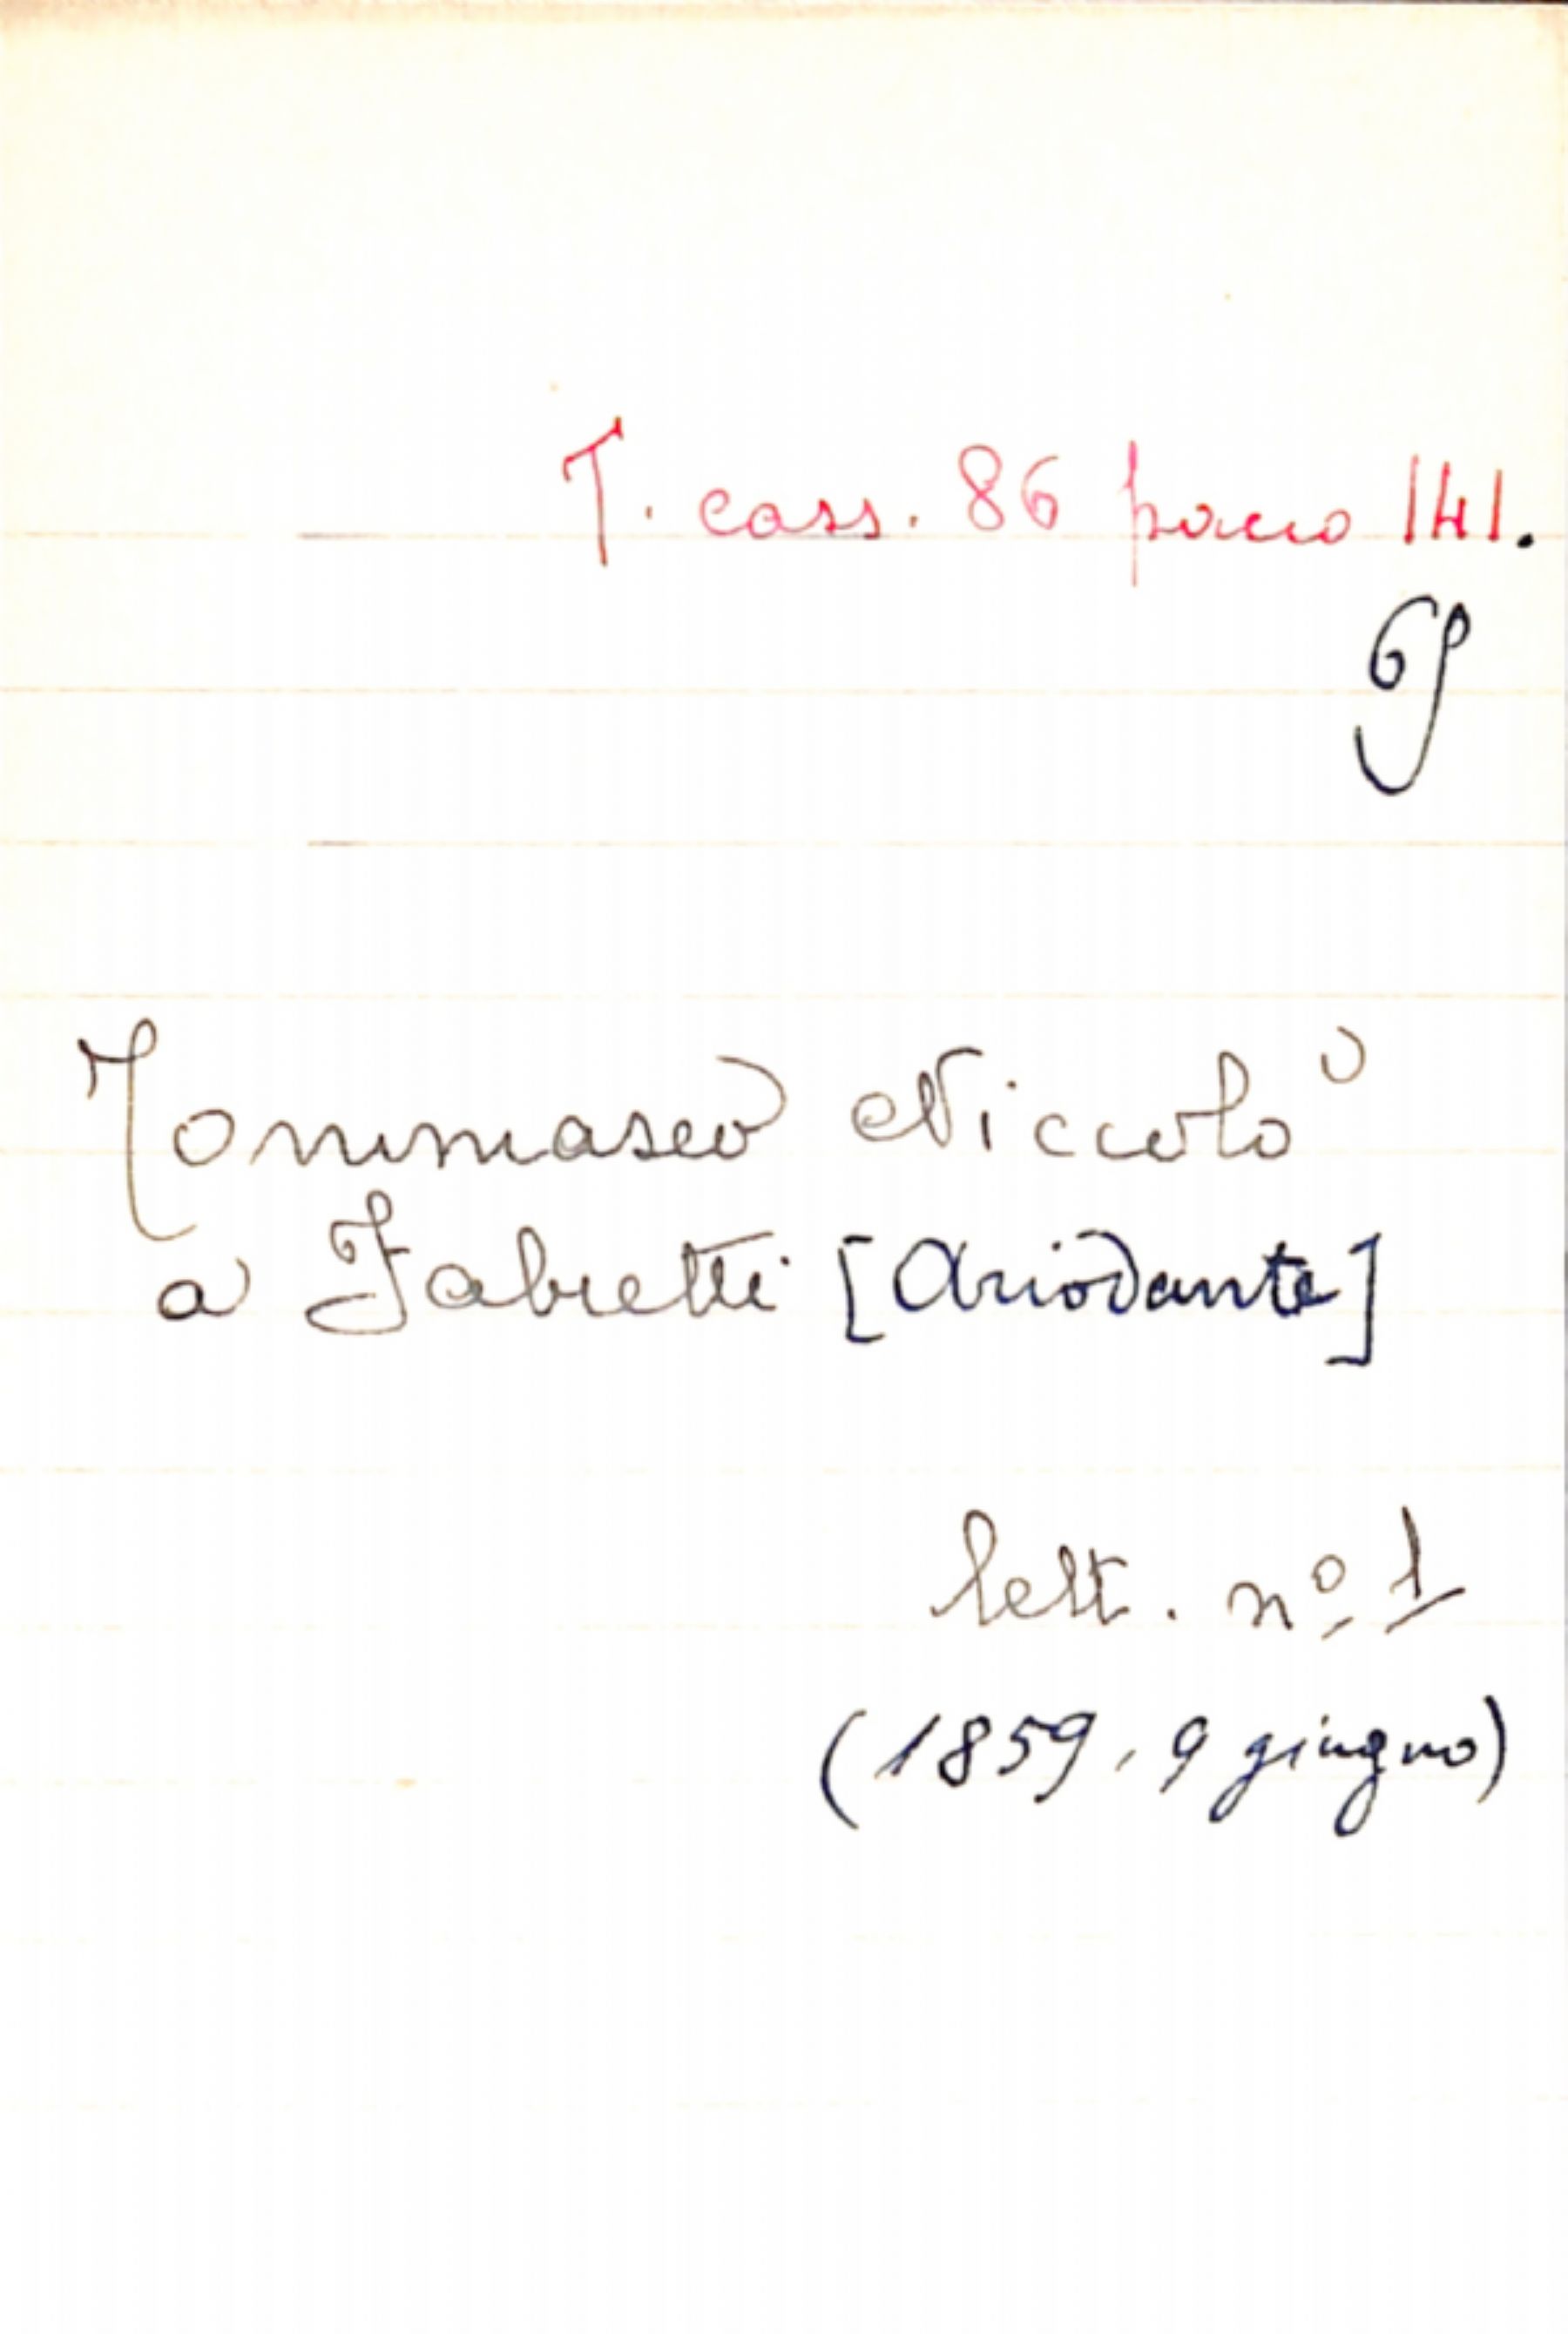 T. cass. 86 pacco 141.
69
Tommaseo Niccolò
a Fabretti [Ariodante]
lett. nº 1
(1859, 9 giugno)